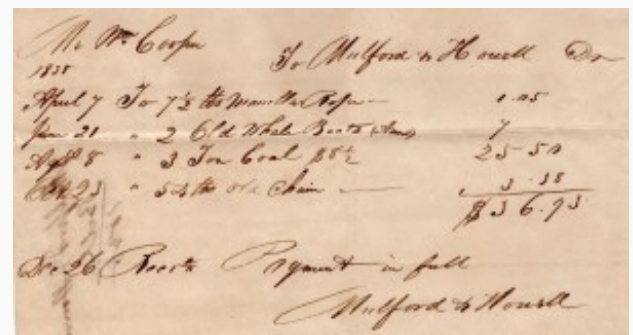 Mr Wm Cooper
To Mulford & Howell Dr
1838
April 7 To 7½ lbs Manilla Rope — 1.05
June 21 " 2 Old Whale Boats 7
8 " 3 Ton Coal 8½ 25-50
23 " lbs Old Chain — 3.38
$36.93
Dec 26 Recd Payment in full
Mulford & Howell